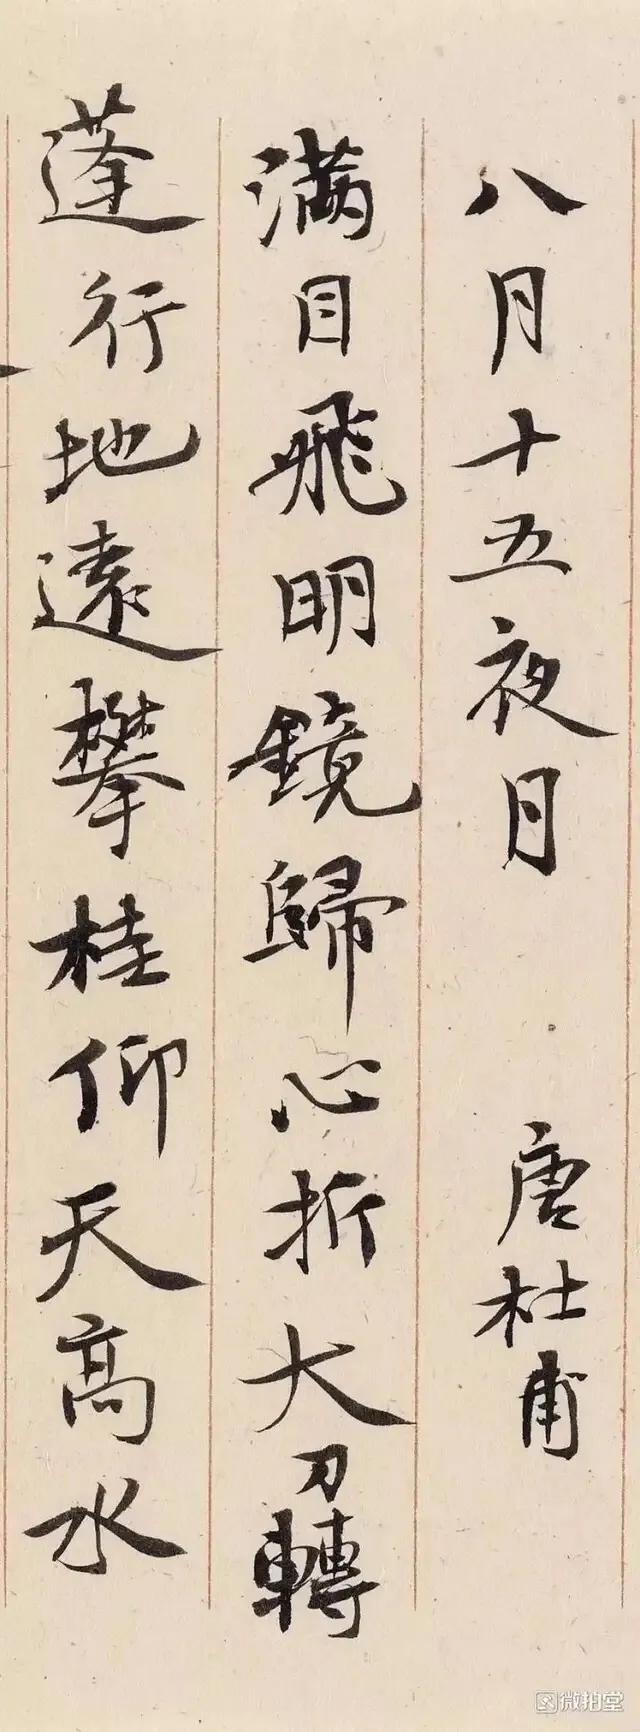 八月十五夜月 唐杜甫
满目飛明鏡歸心折大刀轉
蓬行地遠攀桂仰天高水
微拍堂